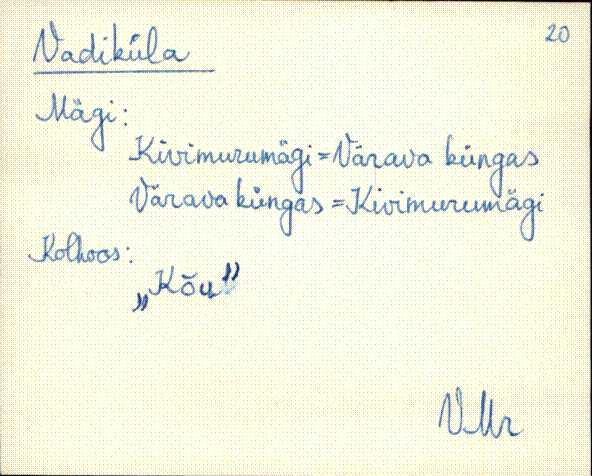 20
Vadiküla
Mägi:
Kivimurumägi = Värava küngas
Värava küngas = Kivimurumägi
Kolhoos:
„Kõu”
VMr